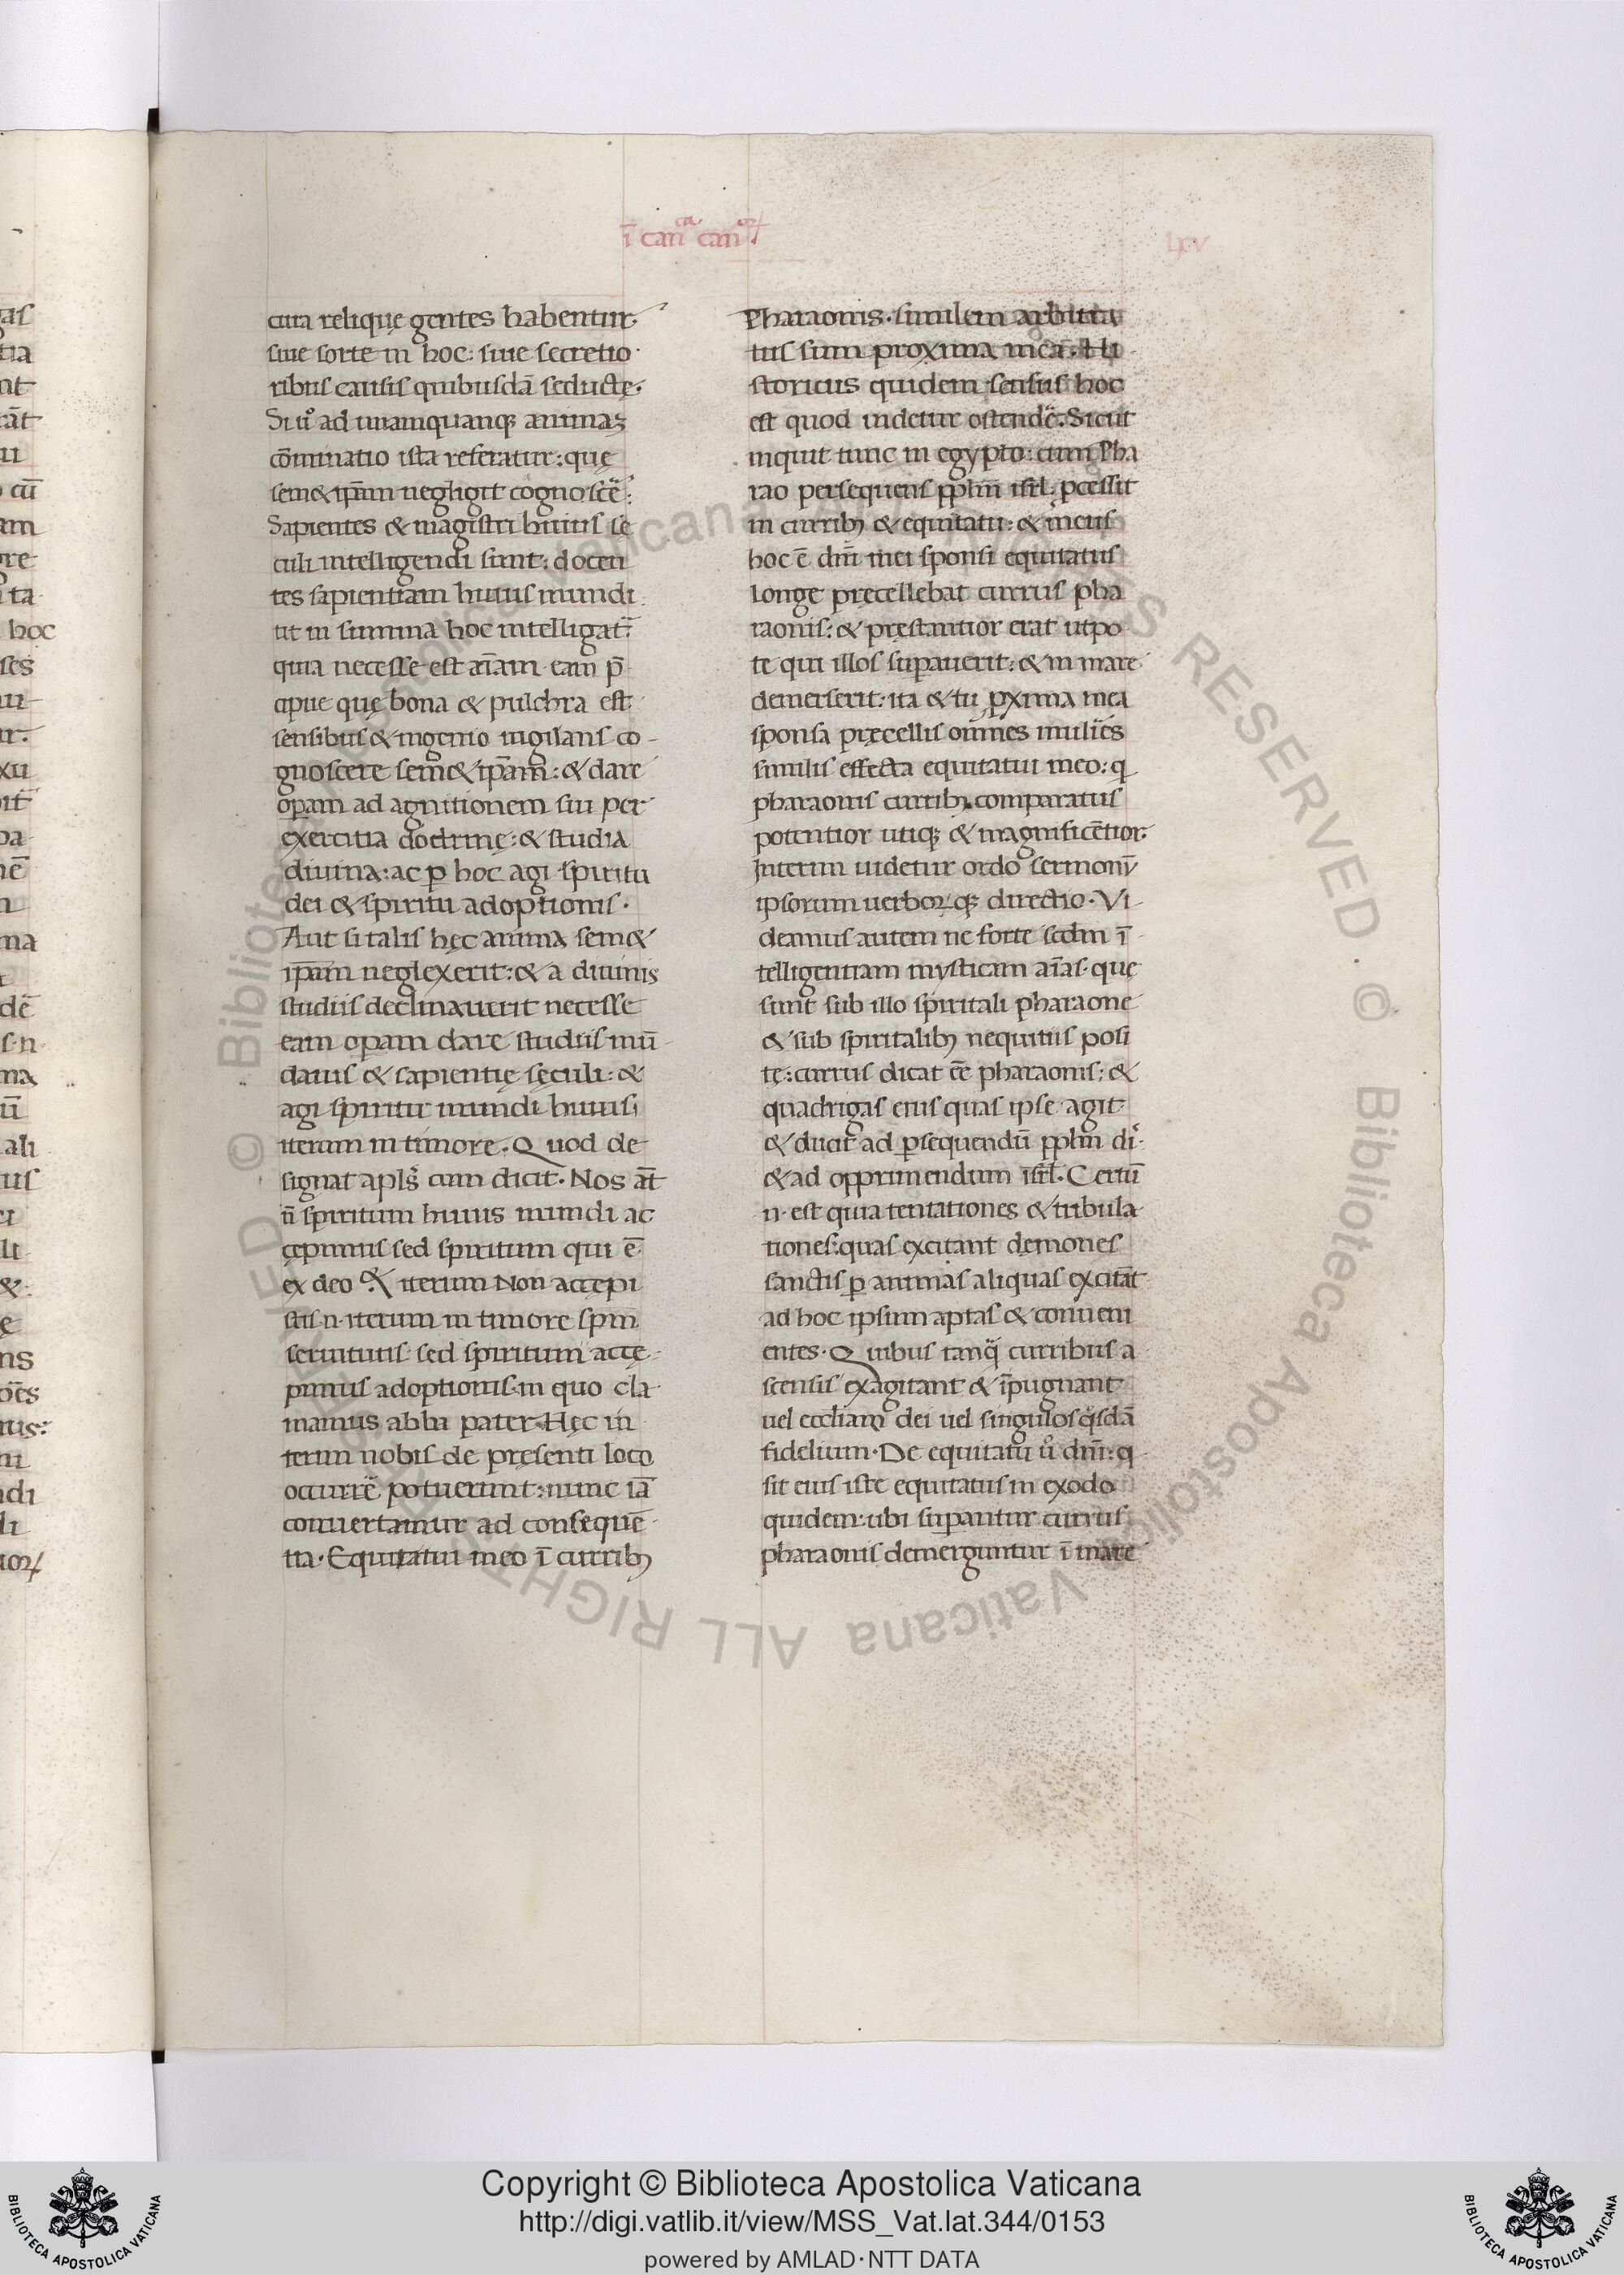 ī canca canoꝝ
lxv
cura relique gentes habentur.
siue sorte in hoc: siue secretio
ribus causis quibusdā seducte.
Si uͦ ad unamquanqꝫ animaꝫ
cōminatio ista referatur: quę
semꝫ & ip̄am negligit cognoscē:
Sapientes & magistri huius se
culi intelligendi sunt: docen
tes sapientiam huius mundi
ut in summa hoc intelligat̄:
quia necesse est aīam eam p̄
cipue quę bona & pulchra est
sensibus & ingenio uigilans co-
gnoscere sem& ip̄am: & dare
oꝑam ad agnitionem sui per
exercitia doctrinę: & studia
diuina: ac ꝑ hoc agi spiritu
dei & spiritu adoptionis.
Aut si talis hęc anima sem&
ip̄am neglexerit: & a diuinis
studiis declinauerit necesse
eam oꝑam dare studiis mū
danis & sapientię sęculi: &
agi spiritu mundi huius
iterum in timore. Quod de
signat apl̄s cum dicit. Nos āt
n̄ spiritum huius mundi ac
cępimus sed spiritum qui ē
ex deo & iterum Non accepi
stis .n. iterum in timore sp̄m
seruitutis sed spiritum accę
pimus adoptionis in quo cla
mamus abba pater. Hęc in
terim nobis de pręsenti loco
occurrē potuerunt: nunc iā
conuertamur ad consequē
tia. Equitatui meo ī curribꝫ
Pharaonis. similem arbitra
tus sum proxima mea. Hi
storicus quidem sensus hoc
est quod uidetur ostendē. Sicut
inquit tunc in egypto: cum Pha
rao persequens pp̄lm isr̄l: ꝓcessit
in curribꝫ & equitatu: & meus
hoc ē dn̄i mei sponsi equitatus
longe pręcellebat currus pha
raonis: & pręstantior erat utpo
te qui illos suꝑauerit: & in mare
demerserit: ita & tu ꝓxima mea
sponsa pręcellis omnes muliēs
similis effecta equitatui meo: q
pharaonis curribꝫ comparatus
potentior utiqꝫ & magnificētior.
Interim uidetur ordo sermonū
ipsorum uerborꝝqꝫ directio. Vi
deamus autem ne forte scd̄m ī
telligentiam mysticam aīas quę
sunt sub illo spiritali pharaone
& sub spiritalibꝫ nequitiis posi
tę: currus dicat eē pharaonis: &
quadrigas eius quas ipse agit
& ducit ad ꝑsequendū pp̄lm di
& ad opprimendum isr̄l. Certū
.n. est quia tentationes & tribula
tiones: quas excitant demones
sanctis ꝑ animas aliquas excitāt
ad hoc ipsum aptas & conueni
entes. Quibus tanq̄ curribus a
scensis exagitant & īpugnant
uel eccl̄iam dei uel singulos q̄sdā
fidelium. De equitatu uͦ dn̄i: q
sit eius iste equitatus in exodo
quidem: ubi suꝑantur currus
pharaonis demerguntur ī mare
Copyright © Biblioteca Apostolica Vaticana
http://digi.vatlib.it/view/MSS_Vat.lat.344/0153
powered by AMLAD·NTT DATA
BIBLIOTECA APOSTOLICA VATICANA
BIBLIOTECA APOSTOLICA VATICANA